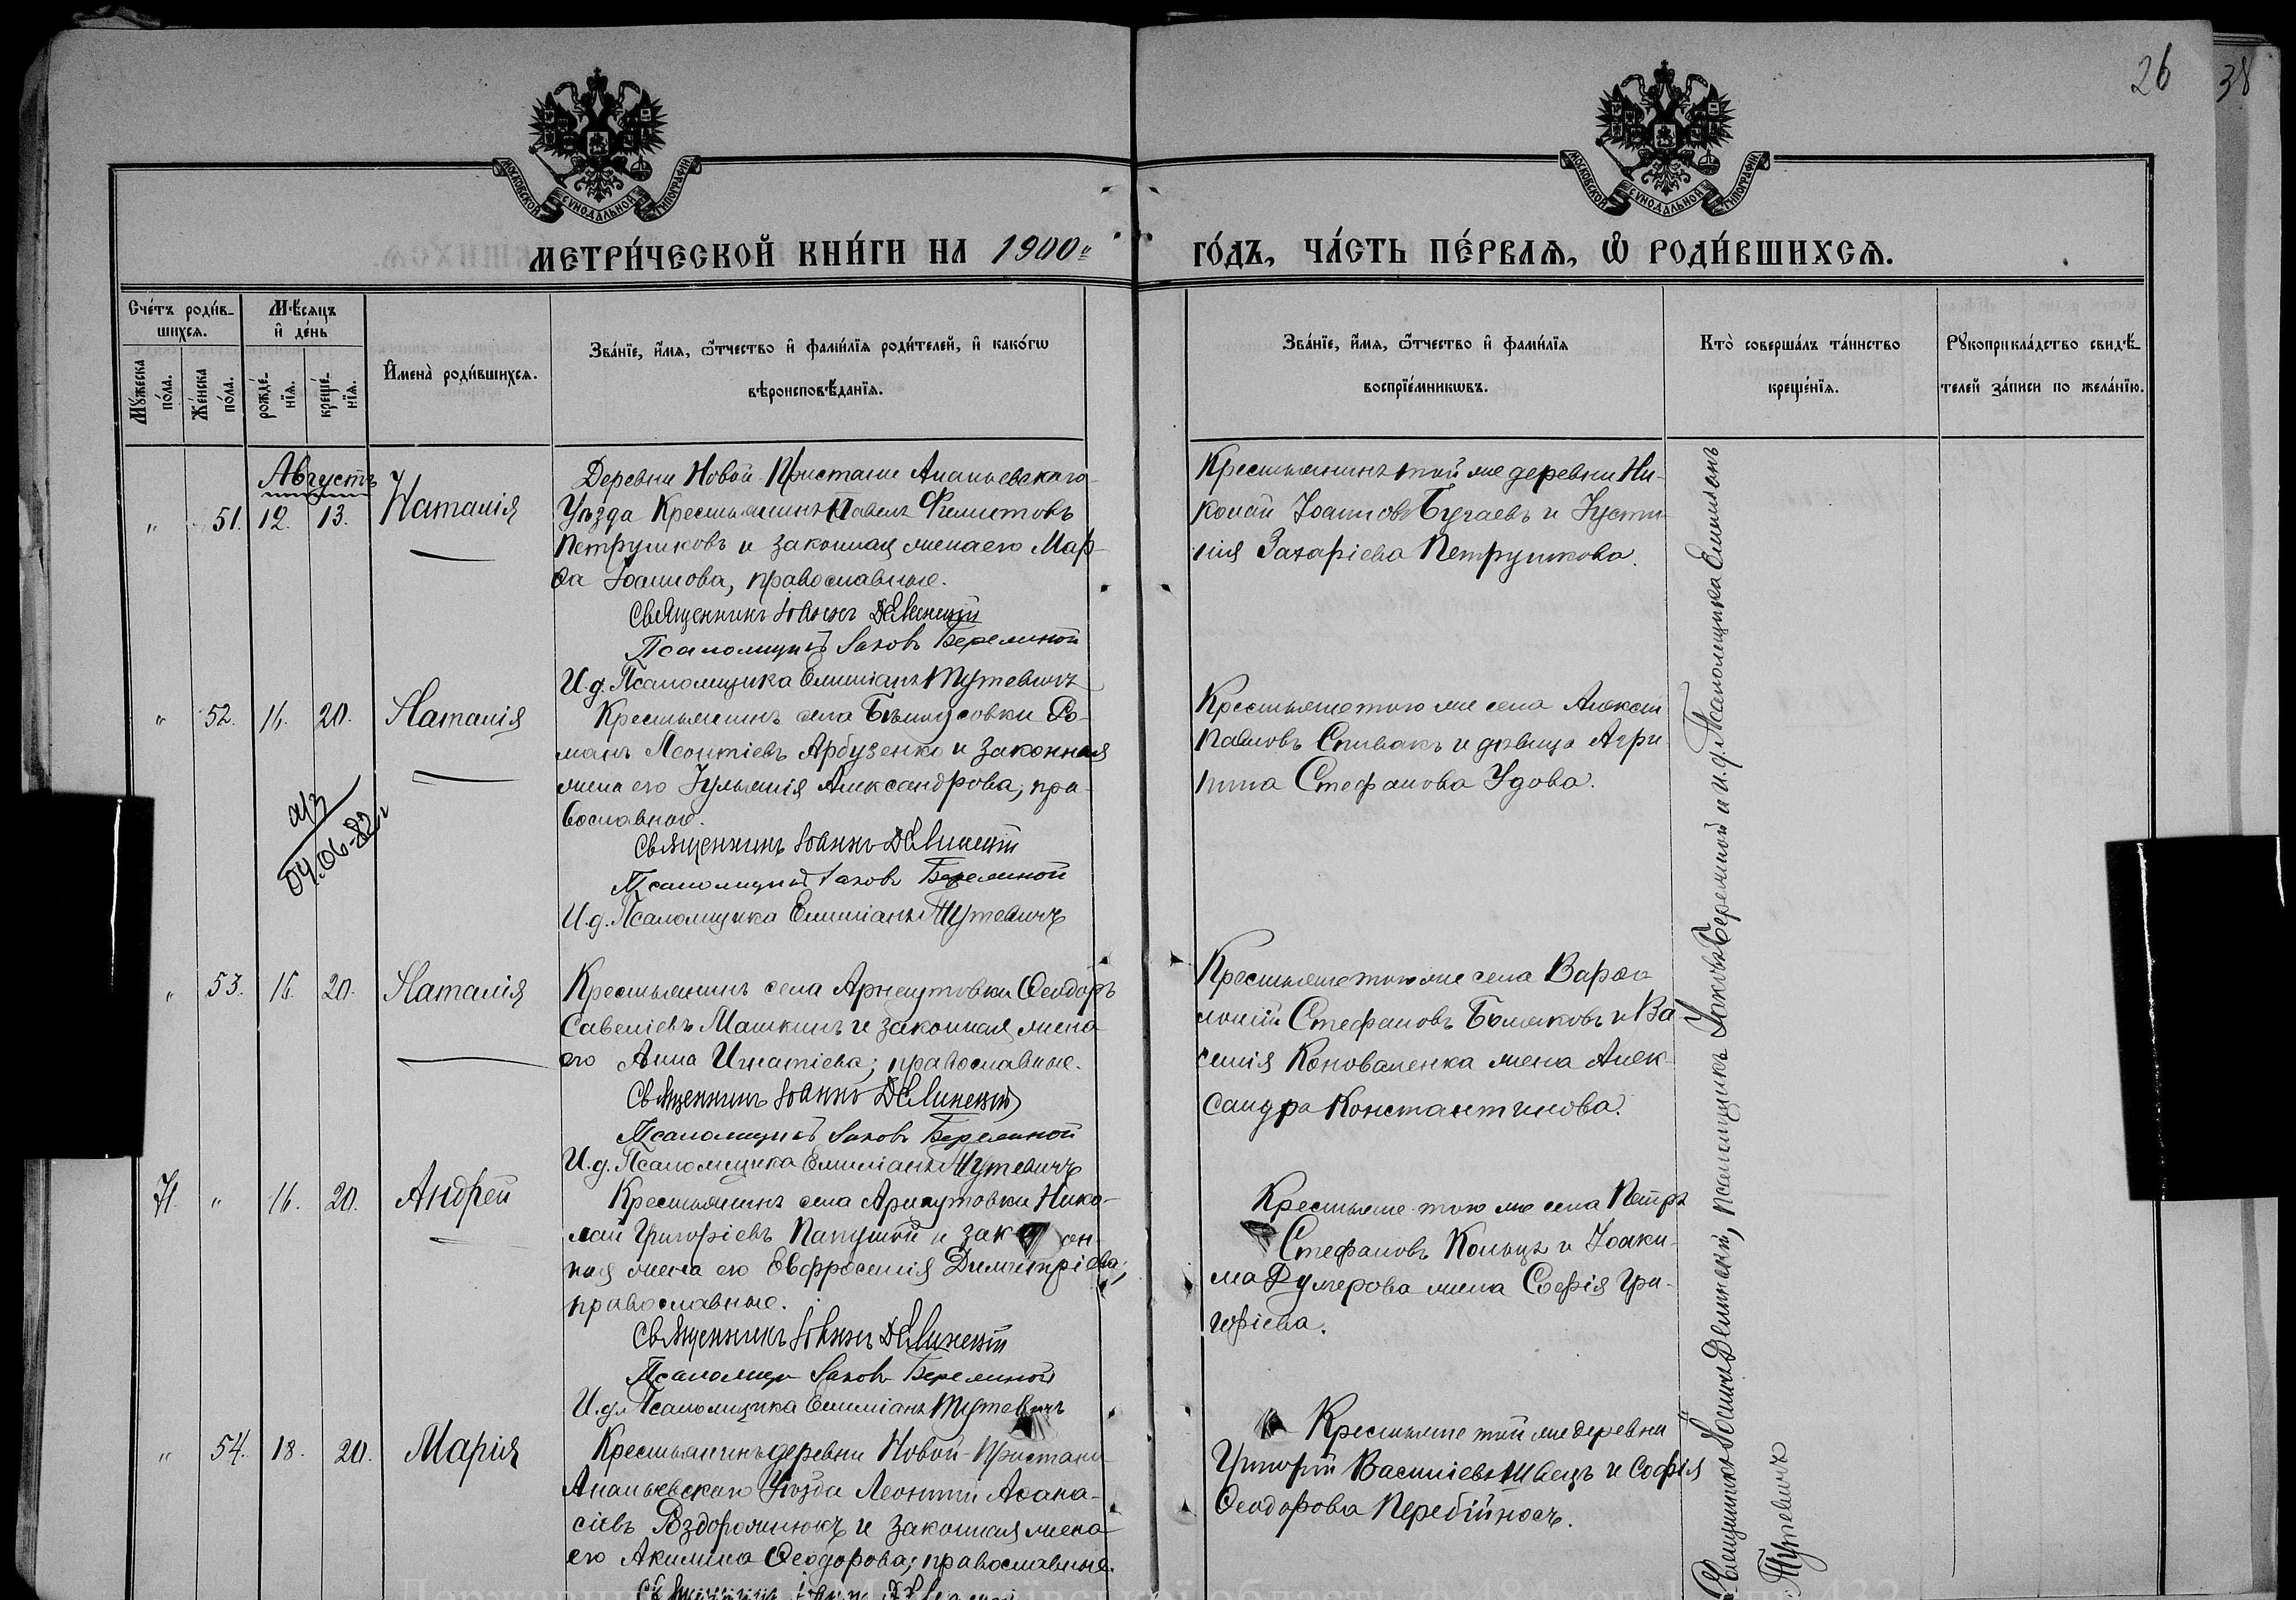 26
38
МОСКОВСКОЙ СѴНОДАЛЬНОЙ ТИПОГРАФІИ
МОСКОВСКОЙ СѴНОДАЛЬНОЙ ТИПОГРАФІИ
МЕТРИ́ЧЕСКОЙ КНИ́ГИ НА 1900й
ГО́ДЪ, ЧА́СТЬ ПЕ́РВАѦ, Ѡ҆ РОДИ́ВШИХСѦ.
Сче́тъ роди́в-
шихсѧ.
Мꙋ́жеска по́ла.
Же́нска по́ла.
Мѣ́сяцъ
и҆ де́нь
рожде́-нїѧ.
креще́-нїѧ.
И҆мена̀ роди́вшихсѧ.
Зва́нїе, и҆́мѧ, ѻ҆́тчество и҆ фами́лїѧ роди́телей, и҆ како́гѡ
вѣроисповѣ́данїѧ.
Зва́нїе, и҆́мѧ, ѻ҆́тчество и҆ фами́лїѧ
воспрїе́мникѡвъ.
Кто̀ соверша́лъ та́инство
креще́нїѧ.
Рꙋкоприкла́дство свидѣ́-
телей за́писи по жела́нїю.
Августъ
" 51. 12. 13. Наталія
Деревни Новой Пристани Ананьевскаго
Уѣзда Крестьянинъ Павелъ Филиповъ
Петрушковъ и законная жена его Мар-
ѳа Іоаннова, православные.
Священникъ Іоаннъ Делинскій
Псаломщикъ Іаковъ Бережной
И. д. Псаломщика Емиліанъ Тутевичъ
Крестьянинъ той же деревни Ни-
колай Іоанновъ Бугаевъ и Іусти-
нія Захаріева Петрушкова.
" 52. 16. 20. Наталія
Крестьянинъ села Бѣлоусовки Ро-
манъ Леонтіевъ Арбузенко и законная
жена его Іуліанія Александрова, пра-
вославные.
Священникъ Іоаннъ Делинскій
Псаломщикъ Іаковъ Бережной
И. д. Псаломщика Емиліанъ Тутевичъ
Крестьяне того же села Алексій
Павловъ Спивакъ и дѣвица Агри-
пина Стефанова Удова.
04.06-82г
" 53. 16. 20. Наталія
Крестьянинъ села Арнаутовки Ѳеодоръ
Савеліевъ Машкинъ и законная жена
его Анна Игнатіева; православные.
Священникъ Іоаннъ Делинскій
Псаломщикъ Іаковъ Бережной
И. д. Псаломщика Емиліанъ Тутевичъ
Крестьяне того же села Варѳо-
ломій Стефановъ и Ва-
силія Коноваленка жена Алек-
сандра Константинова.
71. " 16. 20. Андрей
Крестьянинъ села Арнаутовки Нико-
лай Григоріевъ Папушой и закон-
ная жена его Евфросинія Димитріева;
православные.
Священникъ Іоаннъ Делинскій
Псаломщ Іаковъ Бережной
И. д. Псаломщика Емиліанъ Тутевичъ
Крестьяне того же села Петръ
Стефановъ Кольца и Іоаки-
ма жена Софія Гри-
горіева.
" 54. 18. 20. Марія
Крестьянинъ деревни Новой-Пристани
Ананьевскаго Уѣзда Леонтій Аѳана-
сіевъ и законная жена
его Акилина Ѳеодорова; православные.
Крестьяне той же деревни
Григорій Василіевъ Швецъ и Софія
Ѳеодорова Перебійносъ.
Священникъ Іоаннъ Делинскій, псаломщикъ Іаковъ Бережной и и. д. Псаломщика Емиліанъ
Тутевичъ